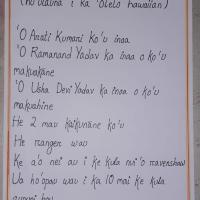 (ho'olauna i ka 'ōlelo hawaiian)
'O Arati Kumari ko'u inoa
'O Ramanand Yadav ka inoa o ko'u
makuakāne
'O Usha Devi Yadav ka inoa o ko'u
makuahine
He 2 mau kaikunāne ko'u
He ranger wau
Ke a'o nei au i ke kula nui 'o ravenshaw
Ua ho'opau wau i ka 10 mai ke kula